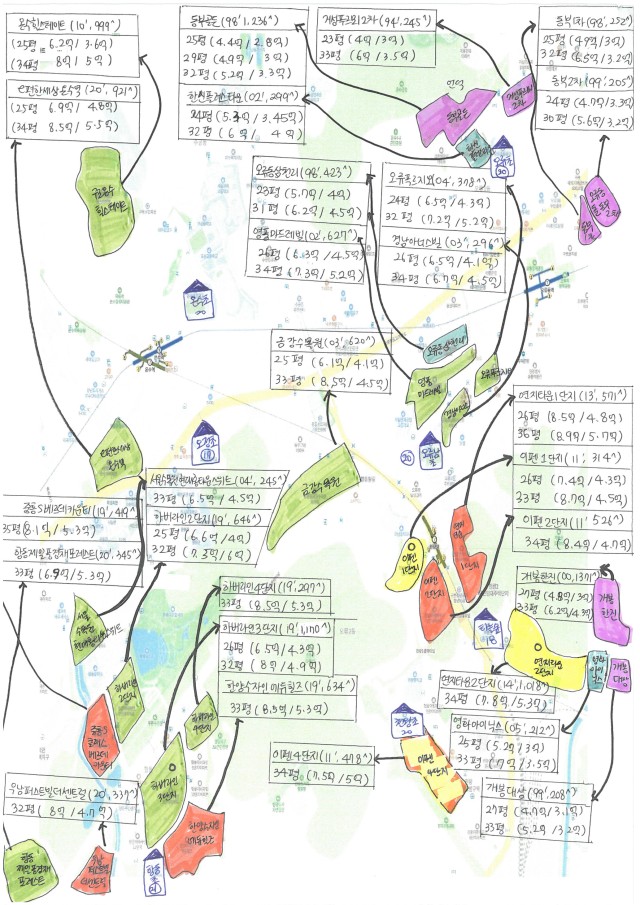 온수힐스테이트 (10', 999^)
(25평 6.2억 / 3.6억)
(34평 8억 / 5억)
e편한세상온수역 (20', 921^)
(25평 6.9억 4.6억)
(34평 8.5억 / 5.5억)
동부골든 (98' 1,236^)
25평 (4.4억 / 2.8억)
29평 (4.9억 / 3억)
32평 (5.2억 / 3.3억)
한신플러스타운 (02', 299^)
24평 (5.3억 / 3.45억)
32평 (6억 / 4억)
개봉푸르지오2차 (94', 245^)
23평 (4억 / 3억)
33평 (6억 / 3.5억)
동부1차 (98', 252^)
25평 (4.9억 / 3억)
32평 (6.5억 / 3.2억)
동부2차 (99', 205^)
24평 (4.7억 / 3.3억)
30평 (5.6억 / 3.2억)
오류동삼천리 (98', 423^)
23평 (5.7억 / 4억)
31평 (6.2억 / 4.5억)
영풍마드레빌 (02', 627^)
26평 (6.3억 / 4.5억)
34평 (7.3억 / 5.2억)
오류푸르지오 (04', 378^)
24평 (6.5억 / 4.3억)
32평 (7.2억 / 5.2억)
경남아너스빌 (03', 296^)
26평 (6.5억 / 4.1억)
34평 (6.7억 / 4.5억)
동부골든
오류초
20
온수초
20
금강수목원 (03', 620^)
25평 (6.1억 / 4.1억)
33평 (8.5억 / 4.5억)
오류동삼천리
영풍
마드레빌
오류푸르지오
오정초
18
오류남초
20
금강수목원
연지타운1단지 (13', 571^)
26평 (8.5억 / 4.8억)
36평 (8.9억 / 5.7억)
이펜1단지 (11', 314^)
26평 (7.4억 / 4.3억)
33평 (8.7억 / 4.5억)
이펜2단지 (11', 526^)
34평 (8.4억 / 4.7억)
서울수목원현대홈타운스위트 (04', 245^)
33평 (6.5억 / 4.5억)
하버라인2단지 (19', 646^)
25평 (6.6억 / 4억)
32평 (7.3억 / 6억)
35평 (8.1억 / 5.3억)
항동제일풍경채포레스트 (20', 345^)
33평 (6.9억 / 5.3억)
하버라인4단지 (19', 297^)
33평 (8.5억 / 5.3억)
하버라인3단지 (19', 1,170^)
26평 (6.5억 / 4.3억)
32평 (8억 / 4.9억)
한양수자인에듀힐즈 (19', 634^)
33평 (8.5억 / 5.3억)
이펜
1단지
이펜
2단지
개봉한진 (00', 137^)
27평 (4.8억 / 3억)
33평 (6.2억 / 4.3억)
개봉
한진
연지타운
2단지
개봉
대상
연지타운2단지 (14', 1,018^)
34평 (7.8억 / 5.3억)
영화아이닉스 (05', 212^)
25평 (5.2억 / 3억)
33평 (7억 / 3.5억)
개봉대상 (99', 208^)
27평 (4.7억 / 3.1억)
33평 (5.2억 / 3.2억)
이펜4단지 (11', 478^)
34평 (7.5억 / 5억)
이펜
4단지
하버라인
2단지
하버라인
4단지
하버라인
3단지
우남퍼스트빌더센트럴 (20', 337^)
32평 (8억 / 4.7억)
항동
제일풍경채
포레스트